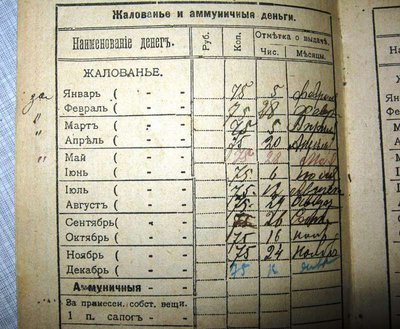 Жалованье и аммуничныя деньги.
Наименованіе денегъ. Руб. Коп. Отмѣтка о выдачѣ.
Чис. Мѣсяцы.
ЖАЛОВАНЬЕ.
за Январь ( - - 75 5
" Февраль ( - - 75 28
" Мартъ ( - - 75 5 Апрѣл
" Апрѣль ( - - 75 20 Апрѣл
" Май ( - - 75 28
Іюнь ( - - 75 6
Іюль ( - - 75
Августъ ( - - 75 29
Сентябрь ( - - 75 26
Октябрь ( - - 75 16 нояб
Ноябрь ( - - 75 24 Ноябр
Декабрь ( - - 75
Аммуничныя - -
За принесен. собст. вещи.
1 п. сапогъ - -